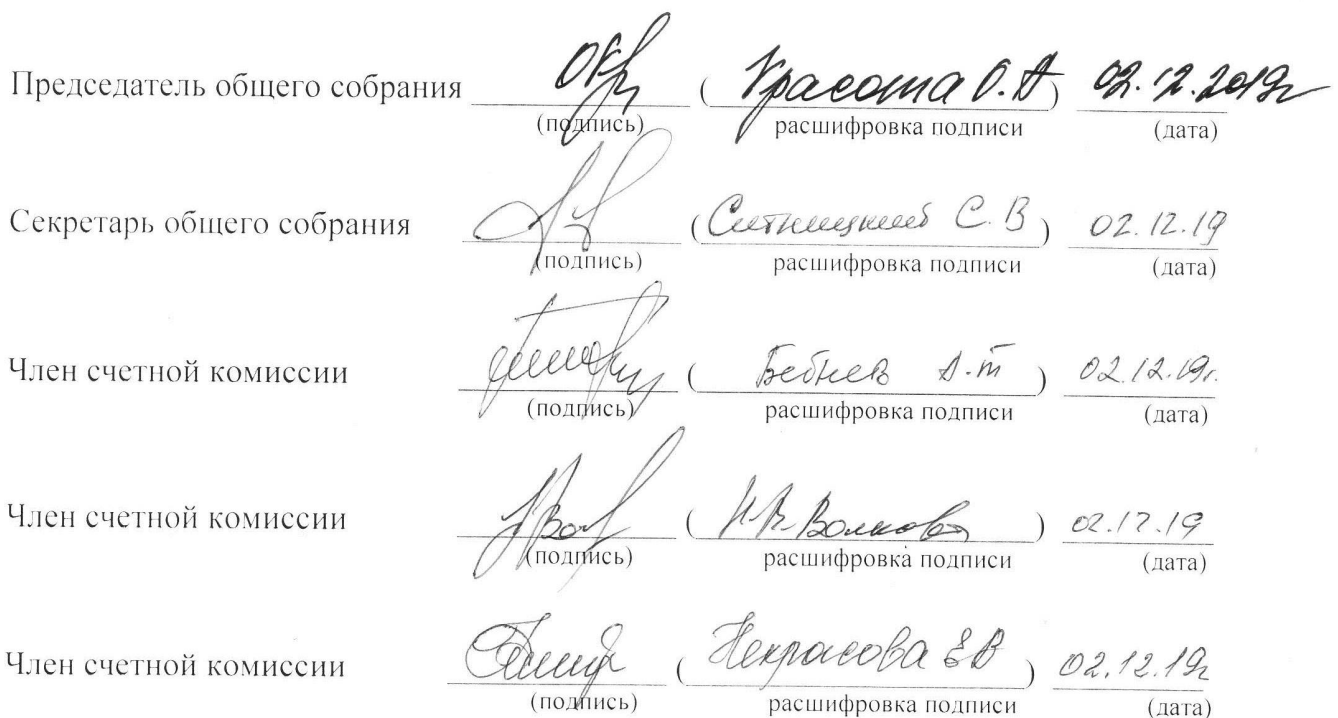 Председатель общего собрания (Красота О.А) 02.12.2019г
(подпись) расшифровка подписи (дата)
Секретарь общего собрания (Ситницкий С.В) 02.12.19
(подпись) расшифровка подписи (дата)
Член счетной комиссии (А.Т) 02.12.19г.
(подпись) расшифровка подписи (дата)
Член счетной комиссии (Н.В. Волкова) 02.12.19
(подпись) расшифровка подписи (дата)
Член счетной комиссии (Некрасова ЕВ) 02.12.19г
(подпись) расшифровка подписи (дата)